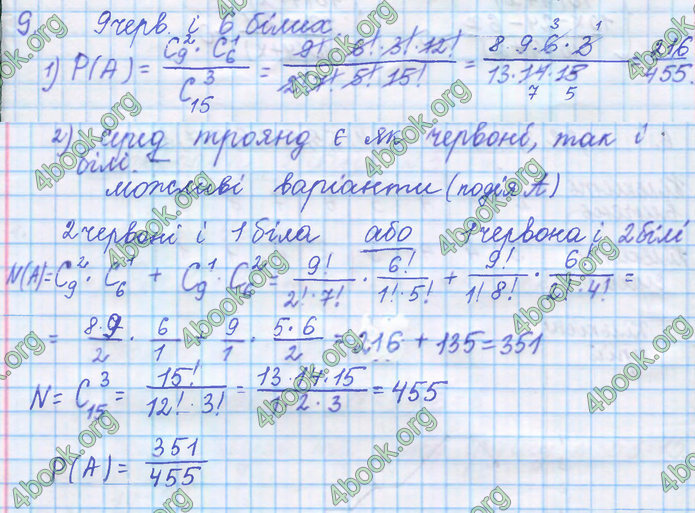 9 9 черв. і 6 білих
1) P(A) = C₉²·C₆¹ / C₁₅³ = 9!·6!·3!·12! / 2!·7!·5!·15! = 8·9·6·3 / 13·14·15 = 216/455
3 1
7 5
2) серед троянд є як червоні, так і
білі.
можливі варіанти (подія A)
2 червоні і 1 біла або 1 червона і 2 білі
N(A) = C₉²·C₆¹ + C₉¹·C₆² = 9!/2!·7! · 6!/1!·5! + 9!/1!8! · 6!/2!·4! =
= 8·9/2 · 6/1 + 9/1 · 5·6/2 = 216 + 135 = 351
N = C₁₅³ = 15!/12!·3! = 13·14·15/1·2·3 = 455
P(A) = 351/455
4book.org